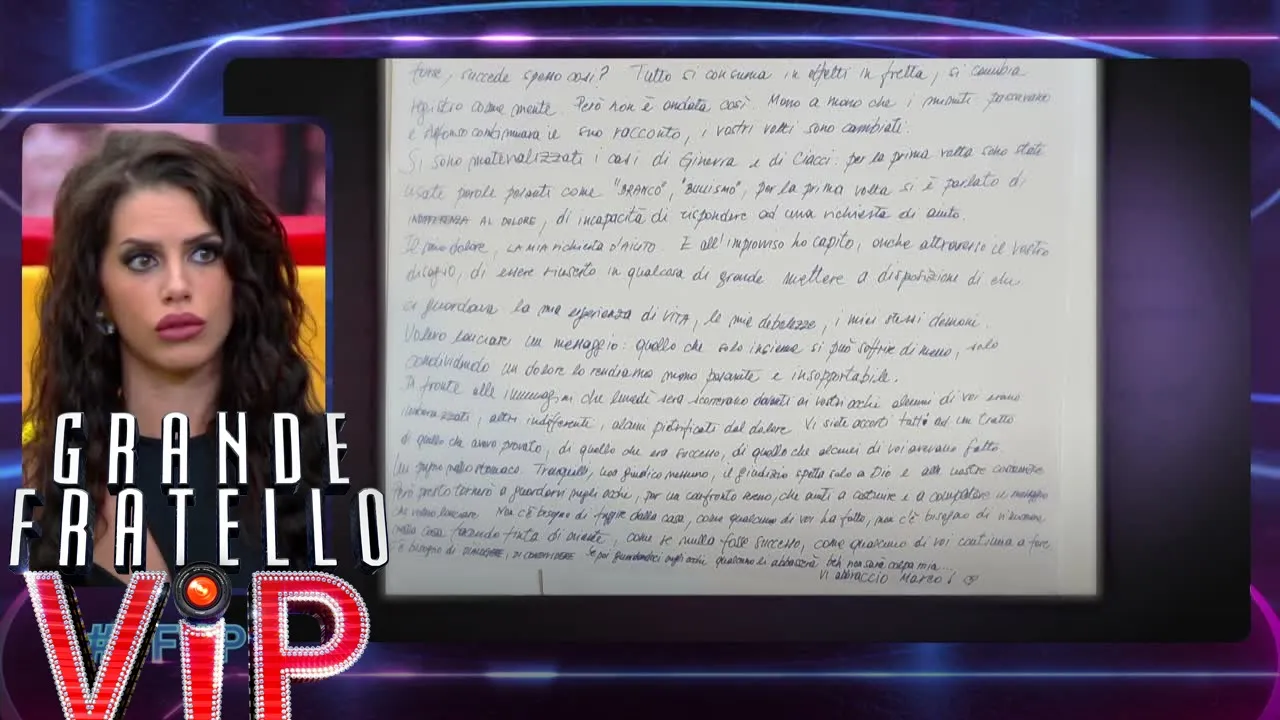 forse, succede spesso così? Tutto si consuma in effetti in fretta, si cambia
registro come niente. Però non è andata così. Mano a mano che i minuti passavano
e Alfonso continuava il suo racconto, i vostri volti sono cambiati.
Si sono materializzati i casi di Ginevra e di Ciacci: per la prima volta sono state
usate parole pesanti come "BRANCO", "BULLISMO", per la prima volta si è parlato di
INDIFFERENZA AL DOLORE, di incapacità di rispondere ad una richiesta di aiuto.
Il mio dolore, LA MIA RICHIESTA D'AIUTO. E all'improvviso ho capito, anche attraverso il vostro
disagio, di essere riuscito in qualcosa di grande mettere a disposizione di chi
ci guardava la mia esperienza di VITA, le mie debolezze, i miei stessi demoni.
Volevo lanciare un messaggio: quello che solo insieme si può soffrire di meno, solo
condividendo un dolore lo rendiamo meno pesante e insopportabile.
Di fronte alle immagini che lunedì sera scorrevano davanti ai vostri occhi alcuni di voi erano
imbarazzati, altri indifferenti, alcuni pietrificati dal dolore. Vi siete accorti tutti ad un tratto
di quello che avevo provato, di quello che era successo, di quello che alcuni di voi avevano fatto.
Un pugno nello stomaco. Tranquilli, non giudico nessuno, il giudizio spetta solo a Dio e alle vostre coscienze
Però presto tornerò a guardarvi negli occhi, per un confronto sereno, che aiuti a costruire e a completare il messaggio
che volevo lanciare. Non c'è bisogno di fuggire dalla casa, come qualcuno di voi ha fatto, non c'è bisogno di rimanere
nella casa facendo finta di niente, come se nulla fosse successo, come qualcuno di voi continua a fare
c'è bisogno di RIMANERE, DI CONDIVIDERE. Se poi guardandoci negli occhi qualcuno li abbasserà beh non sarà colpa mia...
Vi abbraccio Marco!
GRANDE
FRATELLO
ViP